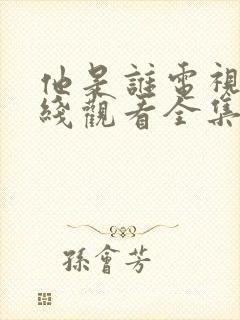 他是誰電視
綫觀看全集
孫會芳